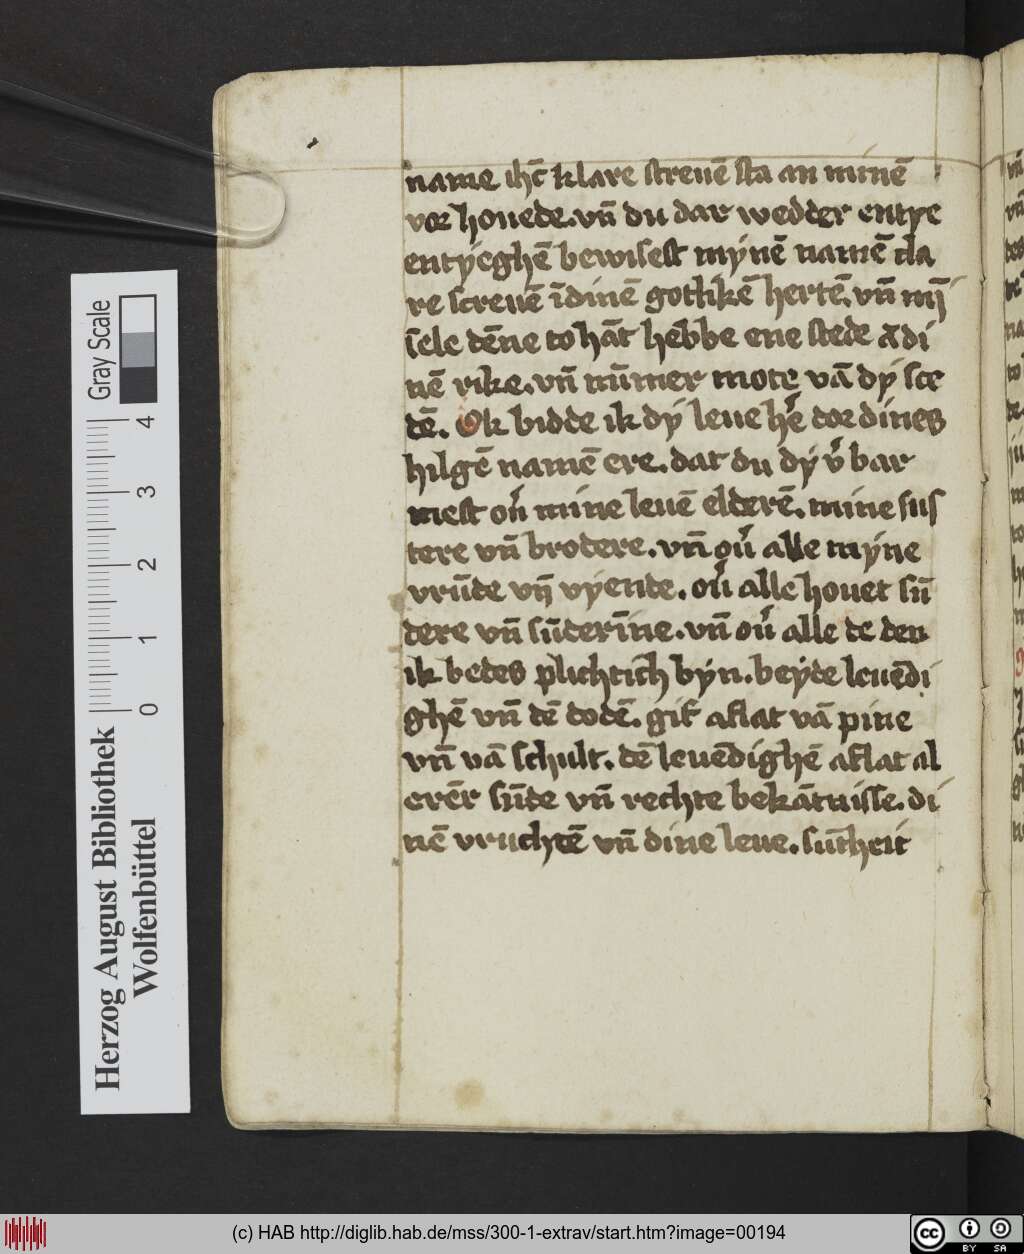 name ihc̄ klare screuē sta an minē
vor houede. vn̄ du dar wedder entye
entyeghē bewisest mynē namē cla
re screuē īdinē gotlikē hertē. vn̄ mȳ
sele dēne to hāt hebbe ene stede ī di
nē rike. vn̄ nūmer mote vā dy sce
dē. Ok bidde ik dy leue he᷎ dor dines
hilgē namē ere. dat du dy v᷎ bar
mest ou᷎ mine leuē elderē. mine sus
tere vn̄ brodere. vn̄ ou᷎ alle myne
vrūde vn̄ vyende. ou᷎ alle houet sū
dere vn̄ sūderīne. vn̄ ou᷎ alle de den
ik bedes plichtich byn. beyde leuēdi
ghē vn̄ dē dodē. gif aflat vā pine
vn̄ vā schult. dē leuēdighē aflat al
erēr sūde vn̄ rechte bekātnisse. di
nē vruchtē vn̄ dine leue. sūtheit
Herzog August Bibliothek
Wolfenbüttel
0 1 2 3 4
Gray Scale
(c) HAB http://diglib.hab.de/mss/300-1-extrav/start.htm?image=00194
cc BY SA